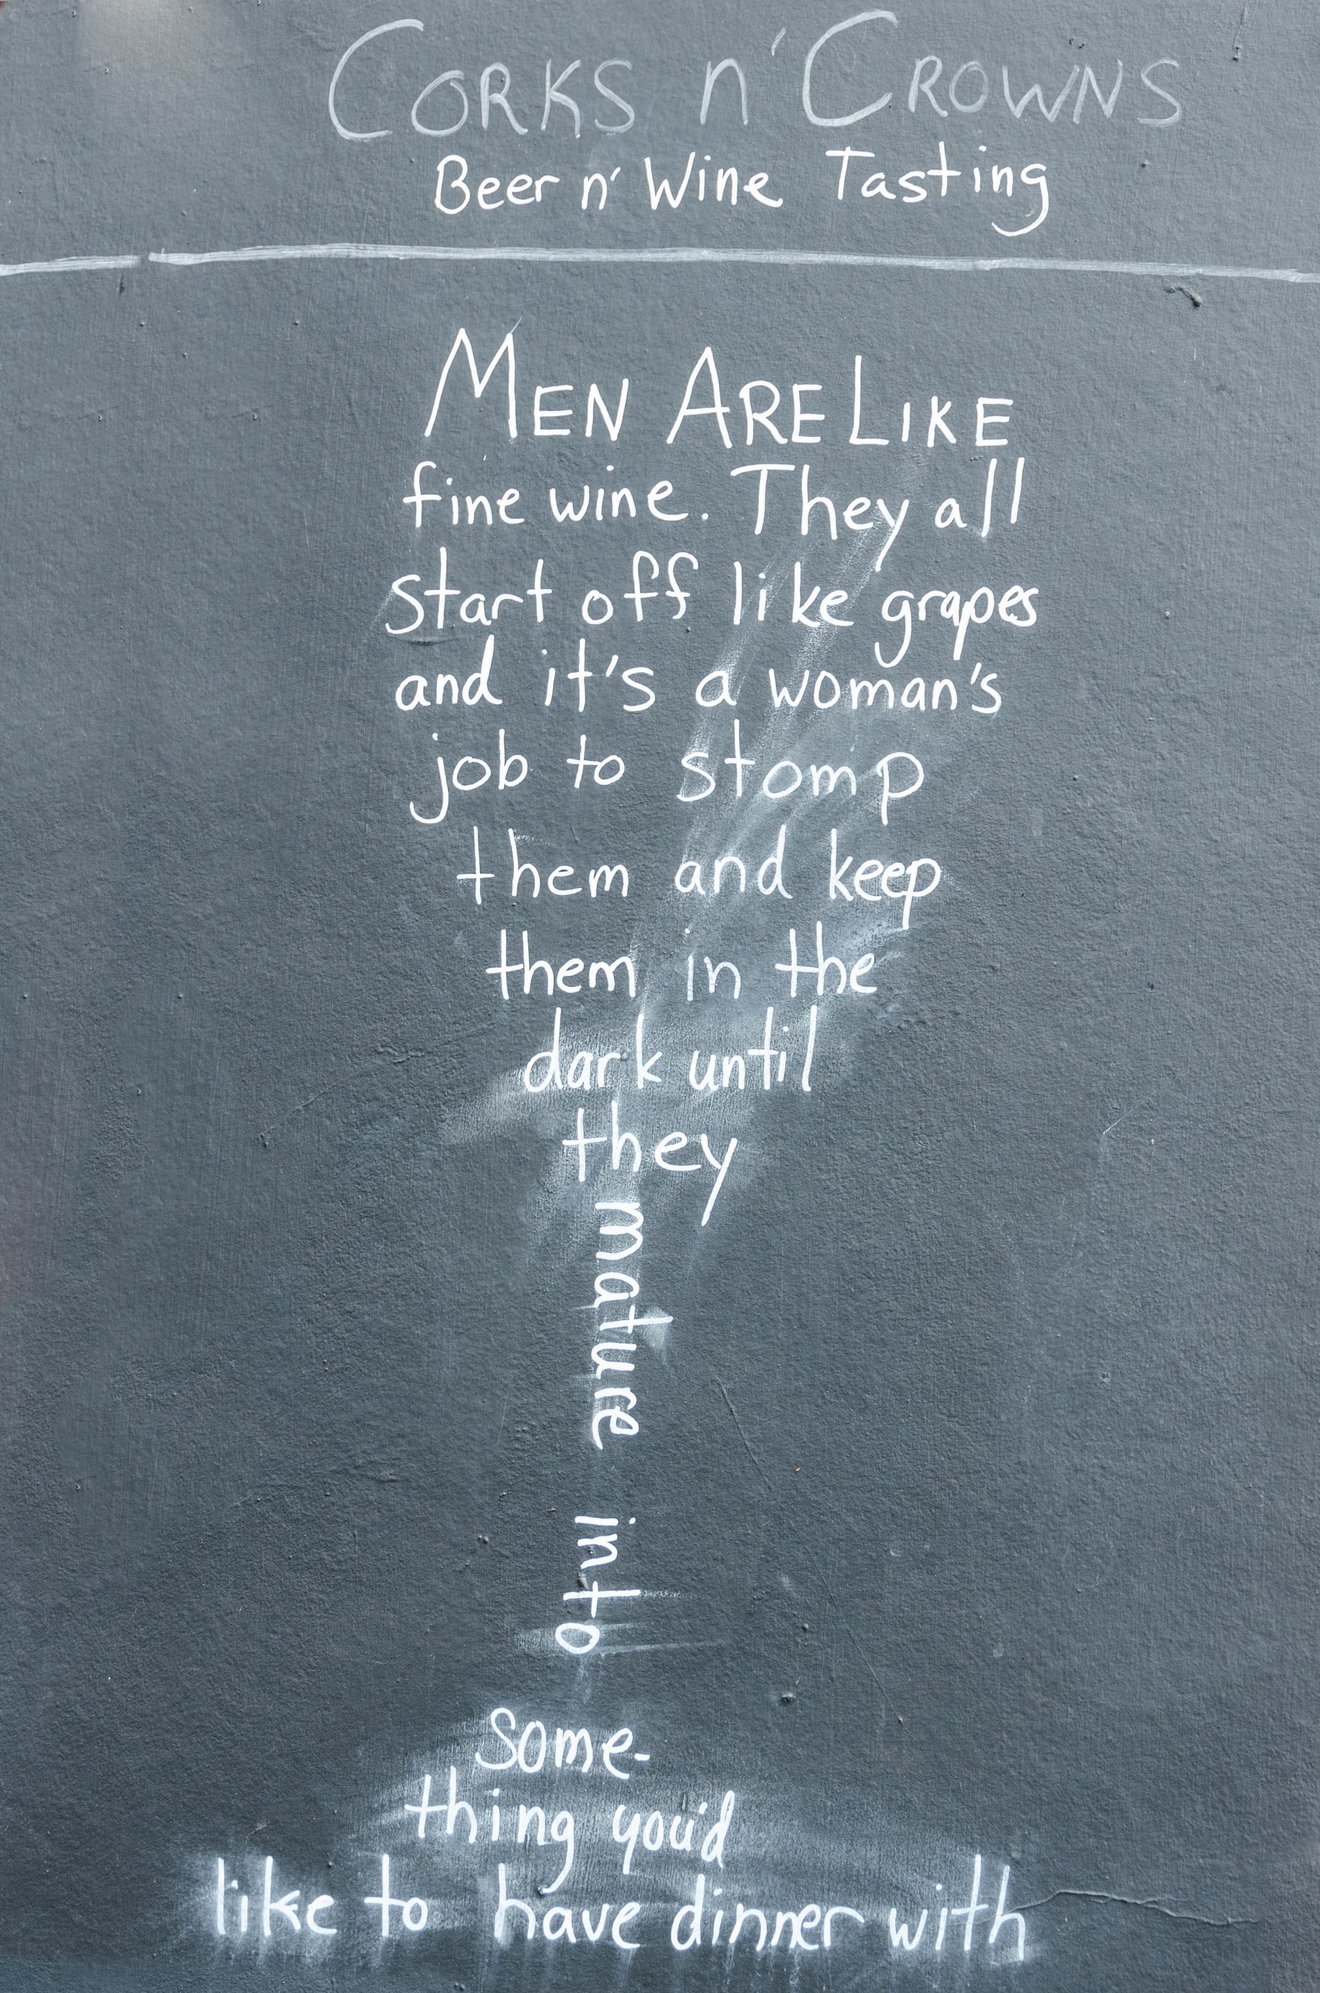 CORKS n' CROWNS
Beer n' Wine Tasting
MEN ARE LIKE
fine wine. They all
start off like grapes
and it's a woman's
job to stomp
them and keep
them in the
dark until
they
mature
into
some-
thing you'd
like to have dinner with